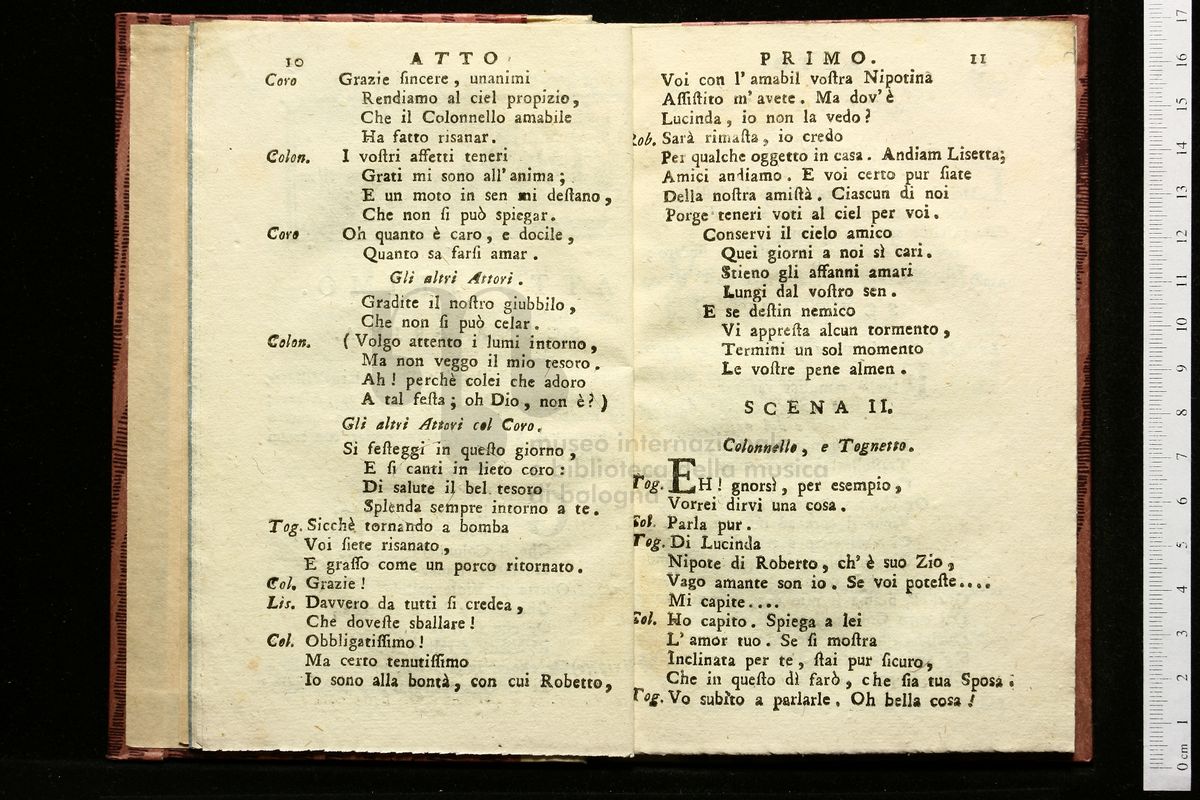 10 ATTO
Coro Grazie sincere, unanimi
Rendiamo al ciel propizio,
Che il Colonnello amabile
Ha fatto risanar.
Colon. I vostri affetti teneri
Grati mi sono all'anima;
E un moto in sen mi destano,
Che non si può spiegar.
Coro Oh quanto è caro, e docile,
Quanto sa farsi amar.
Gli altri Attori.
Gradite il nostro giubbilo,
Che non si può celar.
Colon. (Volgo attento i lumi intorno,
Ma non veggo il mio tesoro.
Ah! perchè colei che adoro
A tal festa; oh Dio, non è?)
Gli altri Attori col Coro.
Si festeggi in questo giorno,
E si canti in lieto coro:
Di salute il bel tesoro
Splenda sempre intorno a te.
Tog. Sicchè tornando a bomba
Voi siete risanato,
E grasso come un porco ritornato.
Col. Grazie!
Lis. Davvero da tutti si credea,
Che doveste sballare!
Col. Obbligatissimo!
Ma certo tenutissimo
Io sono alla bontà, con cui Robetto,
PRIMO. 11
Voi con l'amabil vostra Nipotina
Assistito m'avete. Ma dov'è
Lucinda, io non la vedo?
Rob. Sarà rimasta, io credo
Per qualche oggetto in casa. Andiam Lisetta;
Amici andiamo. E voi certo pur siate
Della nostra amistà. Ciascun di noi
Porge teneri voti al ciel per voi.
Conservi il cielo amico
Quei giorni a noi sì cari.
Stieno gli affanni amari
Lungi dal vostro sen.
E se destin nemico
Vi appresta alcun tormento,
Termini un sol momento
Le vostre pene almen.
SCENA II.
Colonnello, e Tognetto.
Tog. EH! gnorsì, per esempio,
Vorrei dirvi una cosa.
Col. Parla pur.
Tog. Di Lucinda
Nipote di Roberto, ch'è suo Zio,
Vago amante son io. Se voi poteste....
Mi capite....
Col. Ho capito. Spiega a lei
L'amor tuo. Se si mostra
Inclinata per te, stai pur sicuro,
Che in questo dì farò, che sia tua Sposa.
Tog. Vo subìto a parlarle. Oh bella cosa!
museo internazionale
biblioteca della musica
di bologna
0 cm 1 2 3 4 5 6 7 8 9 10 11 12 13 14 15 16 17